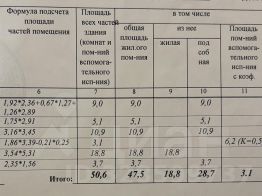 Формула подсчета площади частей помещения
Площадь всех частей здания (комнат и пом-ний вспомога-тельного исп-ния
в том числе
общая площадь жил.ого пом-ния
из нее
жилая
под соб ная
Площадь пом-ний вспомога-тельного исп-ния с коэф.
6 7 8 9 10 11
1,92*2,36+0,67*1,27+ 1,26*2,89 9,0 9,0 9,0
1,75*2,91 5,1 5,1 5,1
3,16*3,45 10,9 10,9 10,9
1,86*3,39-0,21*0,25 3,1 6,2 (К=0,5
3,54*5,31 18,8 18,8 18,8
2,35*1,56 3,7 3,7 3,7
Итого: 50,6 47,5 18,8 28,7 3.1